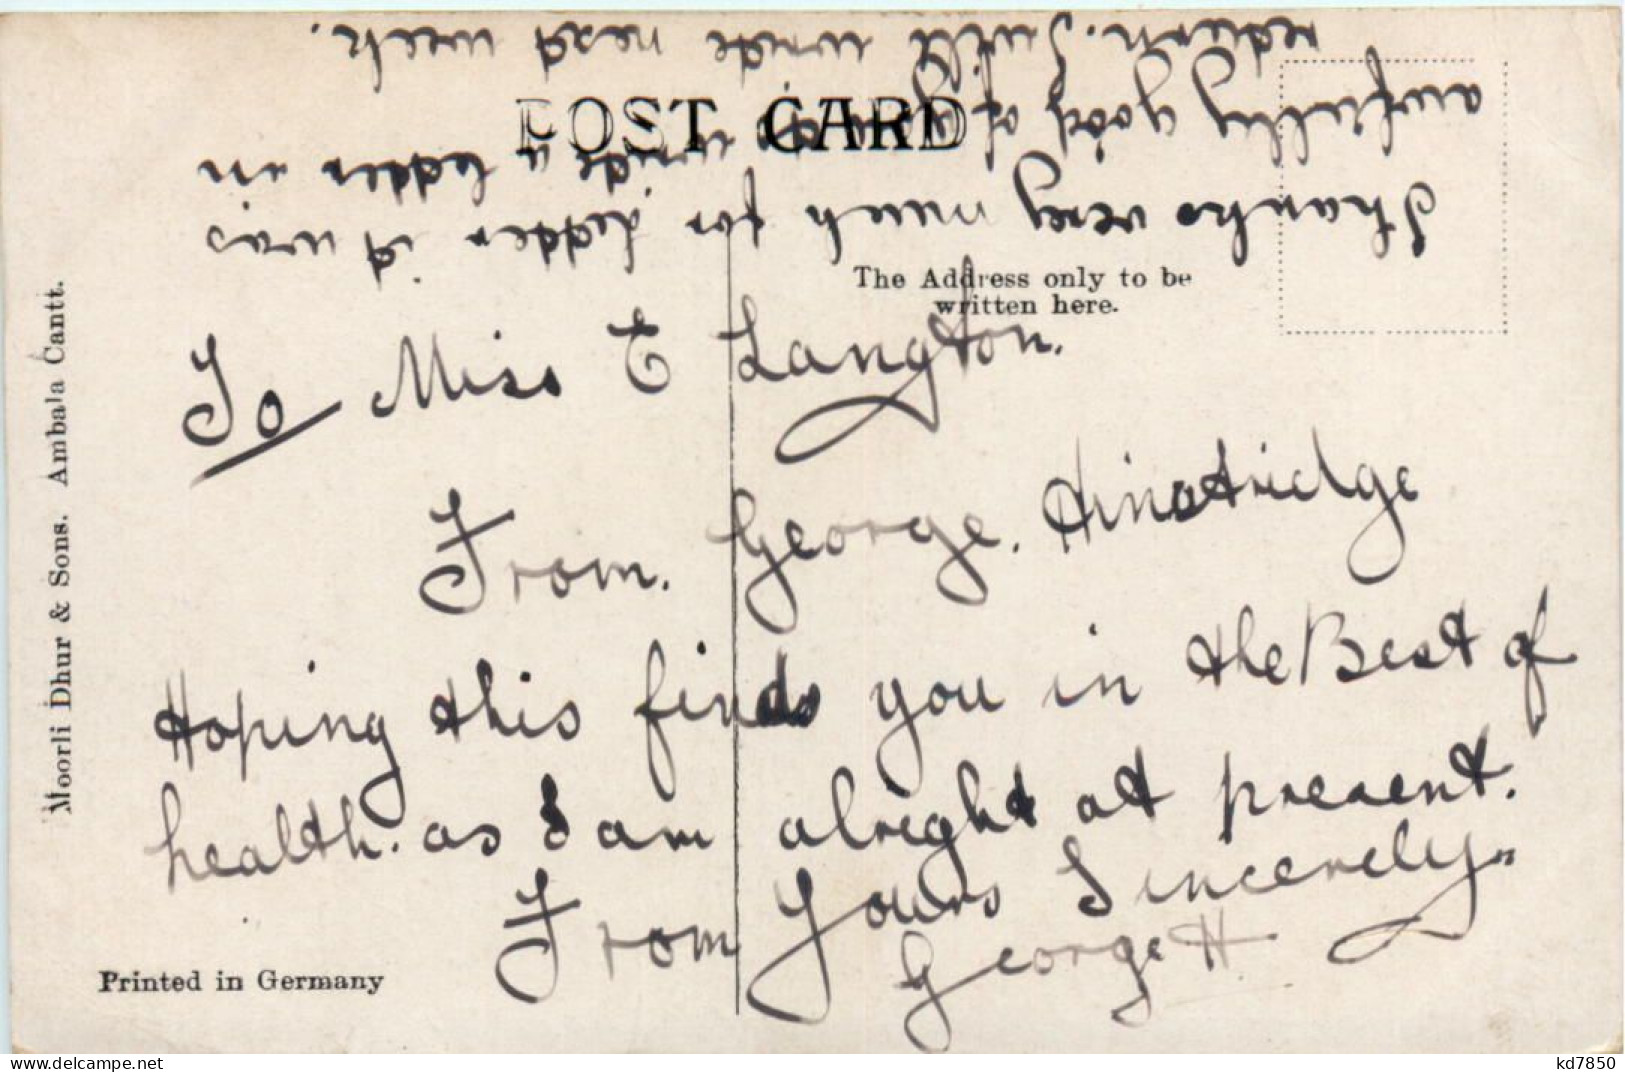 POST CARD
The Address only to be
written here.
To Miss E Langton.
From. George. Hinstridge
Hoping this finds you in the Best of
health. as I am alright at present.
From Yours Sincerely,,
George H
Thanks very much for letter it was
awfully good of you to write a letter in
return. I will write next week.
Moorli Dhur & Sons. Ambala Cantt.
Printed in Germany
www.delcampe.net
kd7850